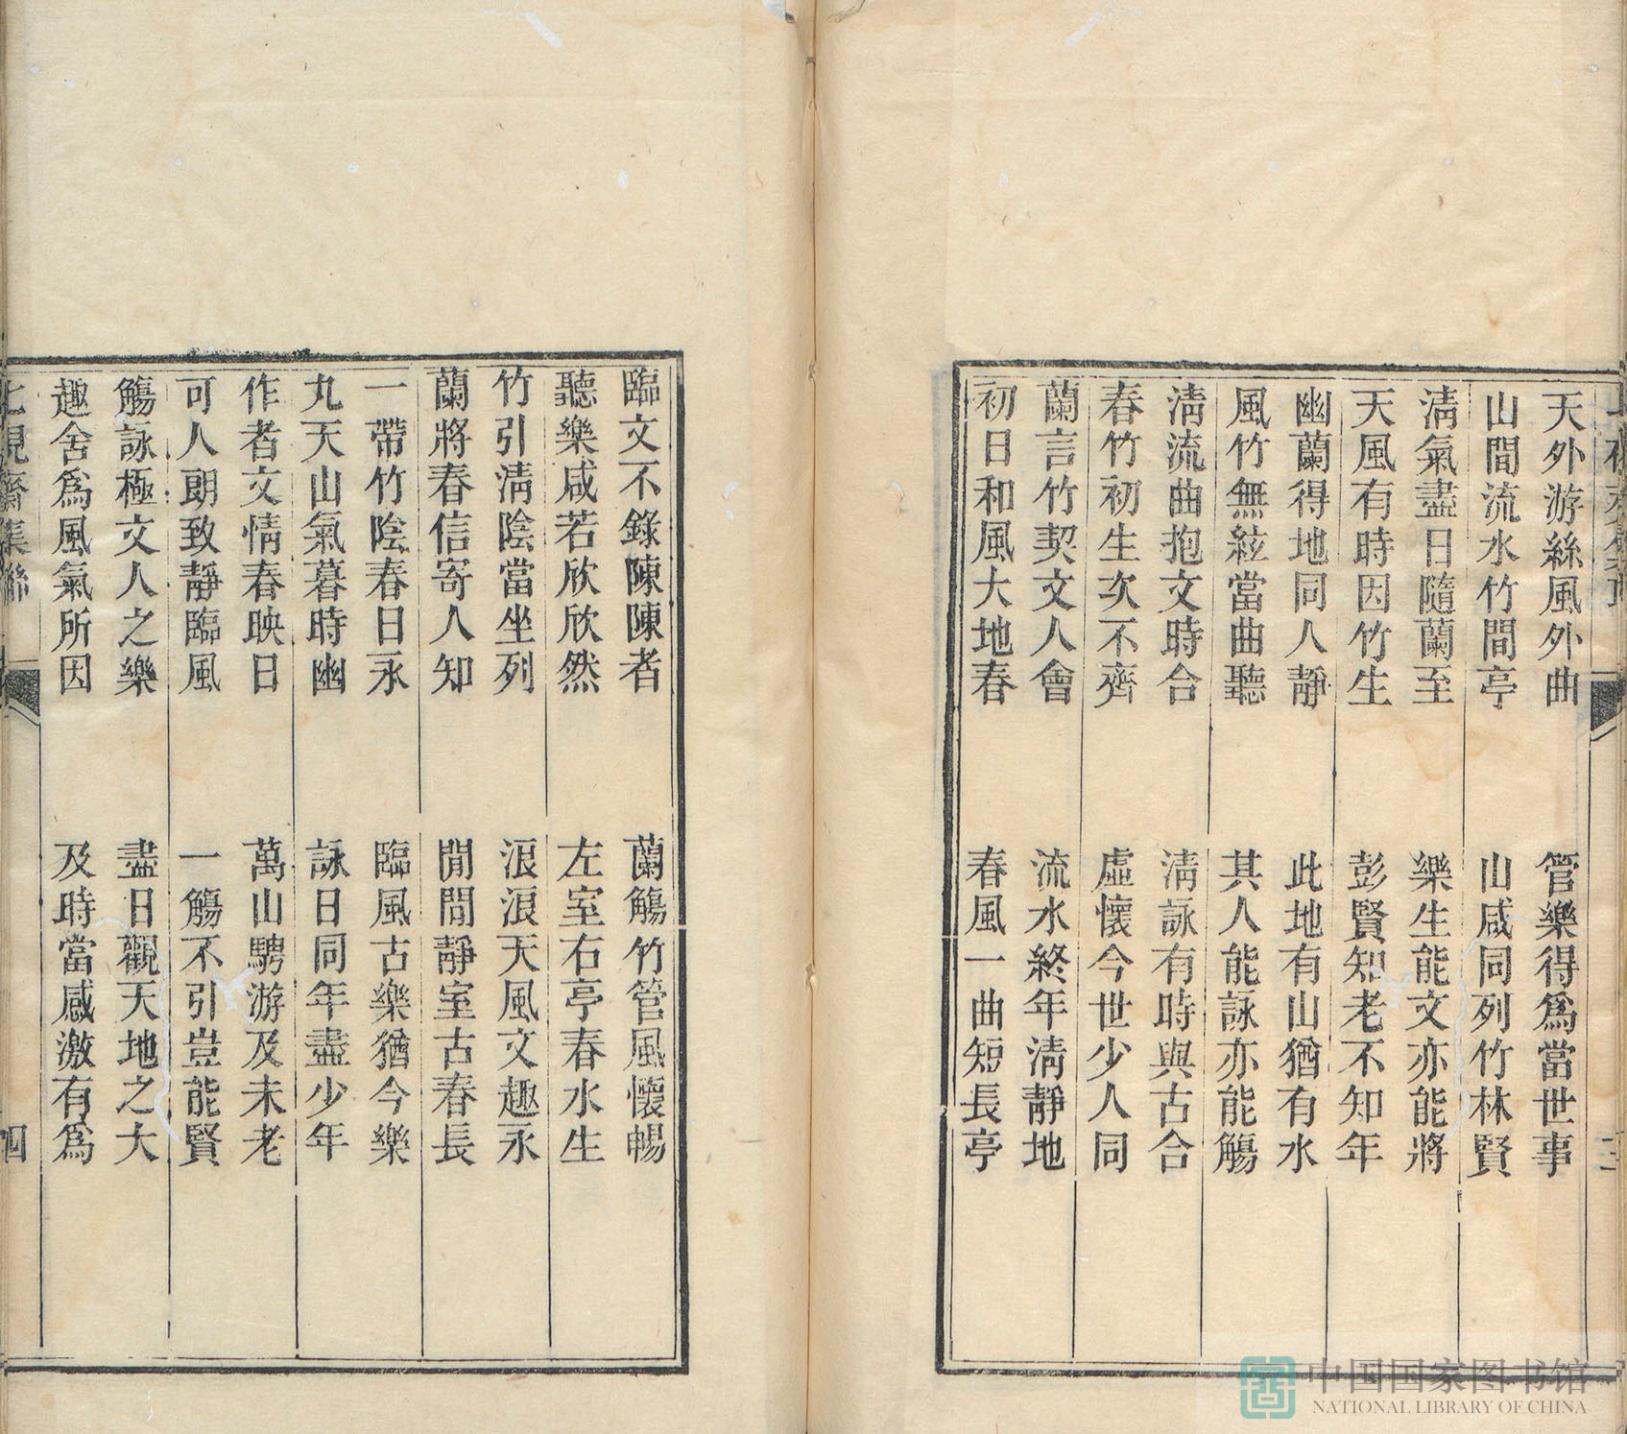 天外游絲風外曲
山間流水竹間亭
管樂得爲當世事
山咸同列竹林賢
清氣盡日隨蘭至
天風有時因竹生
樂生能文亦能將
彭賢知老不知年
幽蘭得地同人靜
風竹無絃當曲聽
此地有山猶有水
其人能詠亦能觴
清流曲抱文時合
春竹初生次不齊
清詠有時與古合
虛懷今世少人同
蘭言竹契文人會
初日和風大地春
流水終年清靜地
春風一曲短長亭
臨文不錄陳陳者
聽樂咸若欣欣然
蘭觴竹管風懷暢
左室右亭春水生
竹引清陰當坐列
蘭將春信寄人知
浪浪天風文趣永
閒閒靜室古春長
一帶竹陰春日永
九天山氣暮時幽
臨風古樂猶今樂
詠日同年盡少年
作者文情春映日
可人朗致靜臨風
萬山騁游及未老
一觴不引豈能賢
觴詠極文人之樂
趣舍爲風氣所因
盡日觀天地之大
及時當感激有爲
齋集聯
四
中国国家图书馆
NATIONAL LIBRARY OF CHINA